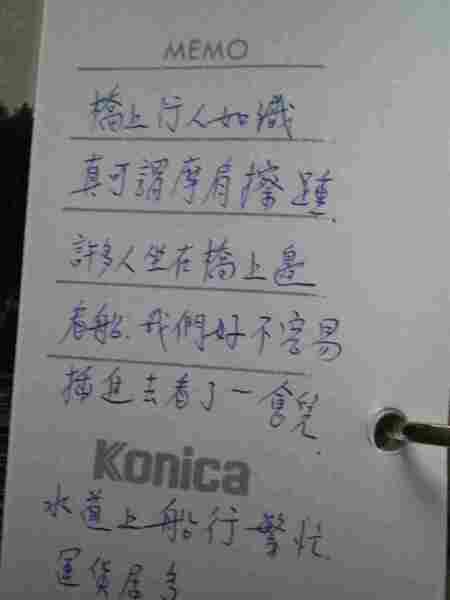 MEMO
橋上行人如織
真可謂摩肩擦踵.
許多人坐在橋上邊
看船.我們好不容易
插進去看了一會兒.
Konica
水道上船行繁忙.
運貨居多